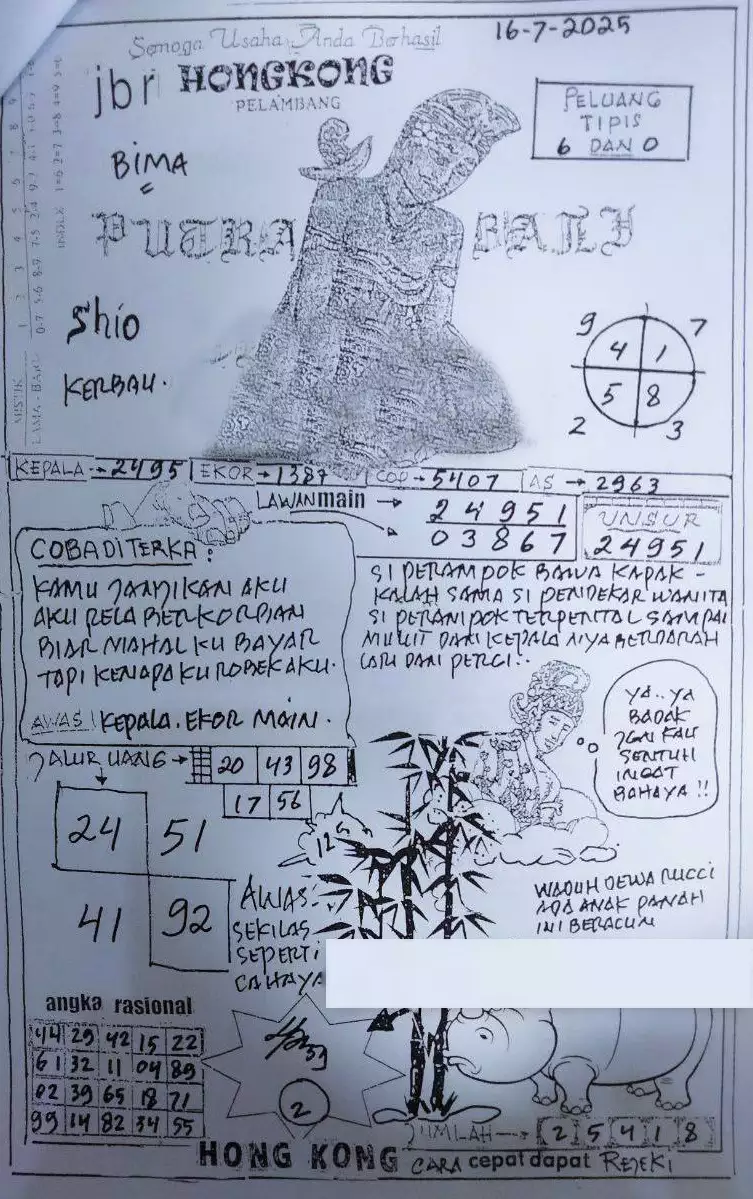 16-7-2025
Semoga Usaha Anda Berhasil
jbr HONGKONG
PELAMBANG
PELUANG
TIPIS
6 DAN 0
BIMA
PUTRA BALI
Shio
KERBAU.
9 7
4 1
5 8
2 3
KEPALA → 2495 EKOR → 1387 COP → 5407 AS → 2963
LAWAN main → 24951
03867
UNSUR
24951
COBA DITERKA :
KAMU JANJIKAN AKU
AKU RELA BERKORBAN
BIAR MAHAL KU BAYAR
TAPI KENAPA KU ROBEK AKU.
AWAS! KEPALA. EKOR MAIN.
SI PERAMPOK BAWA KAPAK -
KALAH SAMA SI PENDEKAR WANITA
SI PERAMPOK TERPENTAL SAMPAI
MULUT DAN KEPALA NYA BERDARAH
LARI DAN PERGI..
YA..YA
BADAK
JGN KAU
SENTUH
INGAT
BAHAYA !!
JALUR UANG → 20 43 98
17 56
24 51
41 92
AWAS
SEKILAS
SEPERTI
CAHAYA
WADUH DEWA RUCCI
ADA ANAK PANAH
INI BERACUN
angka rasional
44 29 42 15 22
61 32 11 04 89
02 39 65 18 71
99 14 82 34 55
2
JUMLAH → 2 5 4 1 8
HONG KONG CARA cepat dapat REJEKI